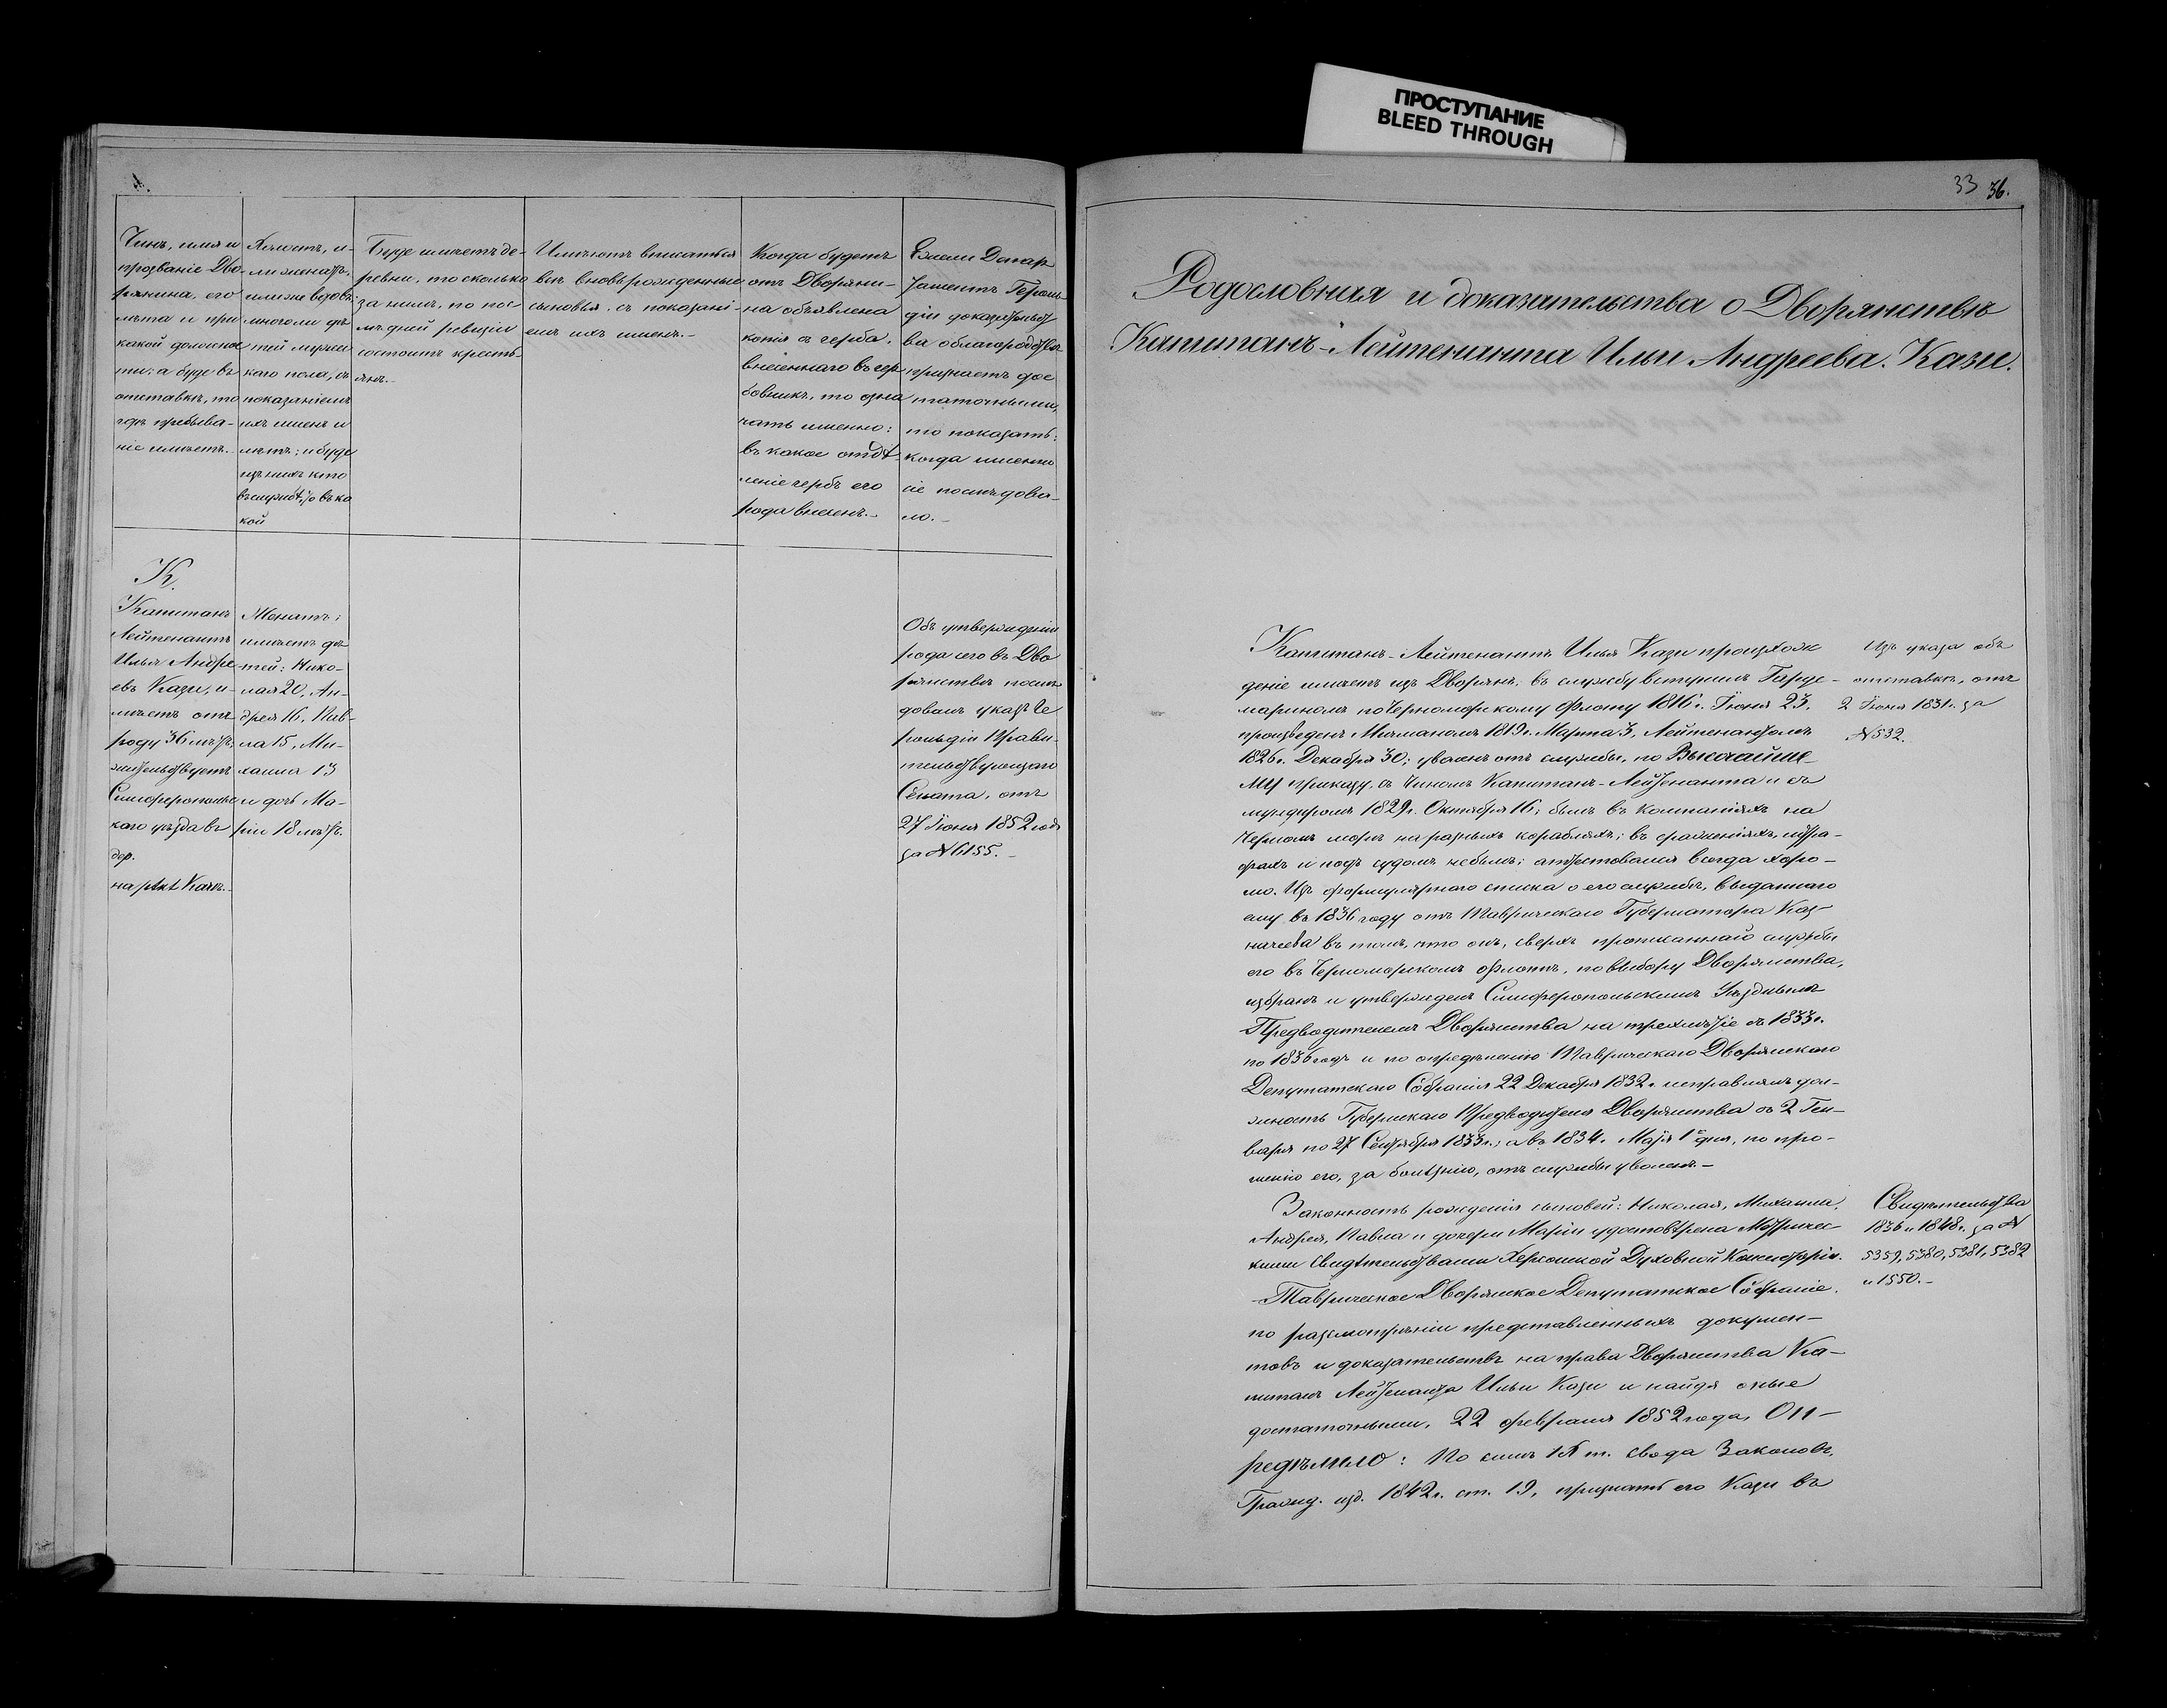 ПРОСТУПАНИЕ
BLEED THROUGH
Чинъ, имя и
прозваніе Дво-
рянина, его
лѣта и при
какой должнос
ти; а буде въ
отставкѣ, то
гдѣ пребыва-
ніе имѣетъ.
Холостъ, и-
ли женатъ,
или же вдовъ;
много ли дѣ
тей мужес
каго пола, съ
показаніемъ
ихъ именъ и
лѣтъ; и буде
изъ нихъ кто
въ службѣ, то въ ка
кой
Буде имѣетъ де-
ревни, то сколько
за нимъ, по пос
лѣдней ревизіи
состоитъ кресть-
янъ.-
Имѣютъ вписаться
вновь рожденные
сыновья, съ показані-
емъ ихъ именъ.-
Когда будетъ
отъ Дворяни-
на объявлена
копія съ герба,
внесеннаго въ гер
бовникъ, то озна
чать именно:
въ какое отдѣ-
леніе гербъ его
рода внесенъ.-
Ежели Депар
таментъ Героль
діи доказательст
ва благородства
признаетъ дос
таточными,
то показать:
когда именно
сіе послѣдова-
ло.-
К.
Капитанъ
Лейтенантъ
Илья Андре-
евъ Кази, и-
мѣетъ отъ
роду 56 лѣтъ,
жительствуетъ
Симферопольс
каго уѣзда въ
дер.
на рѣкѣ Качѣ.-
Женатъ;
имѣетъ дѣ
тей: Нико-
лая 20, Ан-
дрея 16, Пав-
ла 15, Ми-
хаила 13
и дочь Ма-
рію 18 лѣтъ.
Объ утвержденіи
рода сего въ Дво
рянствѣ послѣ
довалъ указъ Ге
рольдіи Прави-
тельствующаго
Сената, отъ
27 Іюня 1852 года
за №6155.-
33 36.
Родословная и доказательства о Дворянствѣ
Капитанъ-Лейтенанта Ильи Андреева Кази.
Капитанъ-Лейтенантъ Илья Кази происхож
деніе имѣетъ изъ Дворянъ, въ службу вступилъ Гарде-
мариномъ по Черноморскому флоту 1816 г. Іюня 23,
произведенъ Мичманомъ 1819 г. Марта 3, Лейтенантомъ
1826 г. Декабря 30; уволенъ отъ службы, по Высочайше-
му приказу, съ Чиномъ Капитанъ-Лейтенанта и съ
мундиромъ 1829 г. Октября 16; былъ въ компаніяхъ на
Черномъ морѣ на разныхъ корабляхъ; въ сраженіяхъ, штра-
фахъ и подъ судомъ не былъ; аттестовался всегда хоро-
шо. Изъ формулярнаго списка о его службѣ, выданнаго
ему въ 1836 году отъ Таврическаго Губернатора Каз-
начеева въ томъ, что онъ, сверхъ прописанной службы
его въ Черноморскомъ флотѣ, по выбору Дворянства,
избранъ и утвержденъ Симферопольскимъ Уѣзднымъ
Предводителемъ Дворянства на трехлѣтіе съ 1833 г.
по 1836 годъ и по опредѣленію Таврическаго Дворянскаго
Депутатскаго Собранія 22 Декабря 1832 г. исправлялъ дол-
жность Губернскаго Предводителя Дворянства съ 2 Ген-
варя по 27 Сентября 1833 г.; а въ 1834 г. Маія 1го дня, по про-
шенію его, за болѣзнію, отъ службы уволенъ.-
Законность рожденія сыновей: Николая, Михаила,
Андрея, Павла и дочери Маріи удостовѣрена Метричес
кими Свидѣтельствами Херсонской Духовной Консисторіи.
Таврическое Дворянское Депутатское Собраніе,
по разсмотрѣніи представленныхъ докумен-
товъ и доказательствъ на права Дворянства Ка-
питанъ Лейтенанта Ильи Кази и найдя оныя
достаточными, 22 февраля 1852 года, Оп-
редѣлило: По силѣ IX т. свода Законовъ,
Гражд. изд. 1842 г. ст. 19, признать его Кази въ
Изъ указа объ
отставкѣ, отъ
2 Іюня 1831 г. за
№532.
Свидѣтельства
1836 и 1848 г. за №
5359, 5380, 5381, 5382
и 1550.-